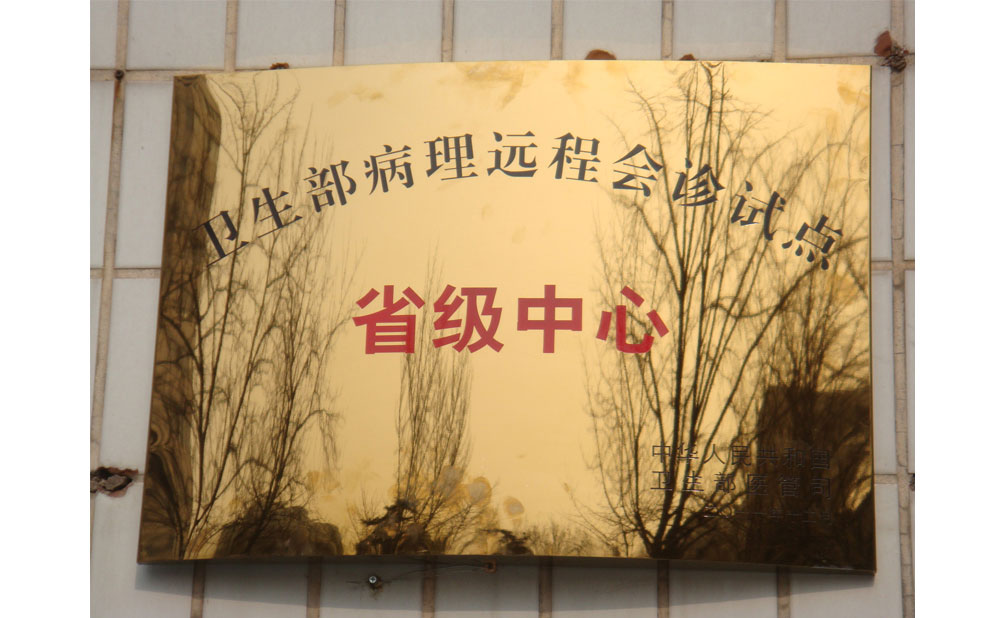 卫生部病理远程会诊试点
省级中心
中华人民共和国
卫生部医管司